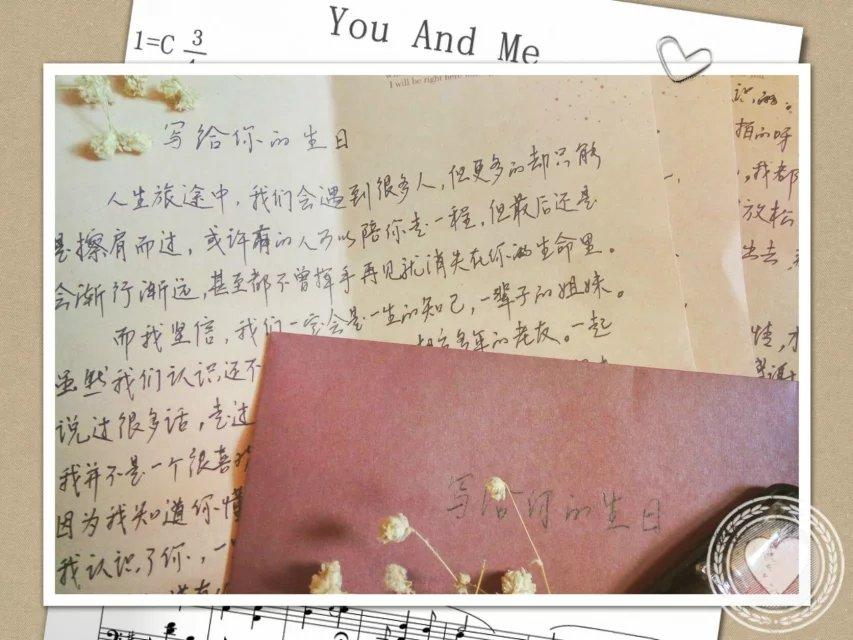 You And Me
1=C 3/4
I will be right here
写给你的生日
人生旅途中，我们会遇到很多人，但更多的却只能
是擦肩而过，或许有的人可以陪你走一程，但最后还是
会渐行渐远，甚至都不曾挥手再见就消失在你的生命里。
而我坚信，我们一定会是一生的知己，一辈子的姐妹。
虽然我们认识还不
多年的老友。一起
说过很多话，走过
我并不是一个很喜
因为我知道你懂
我认识了你，一
写给你的生日
识，的。
拍的呀
，我都
放松
出去，
情，才